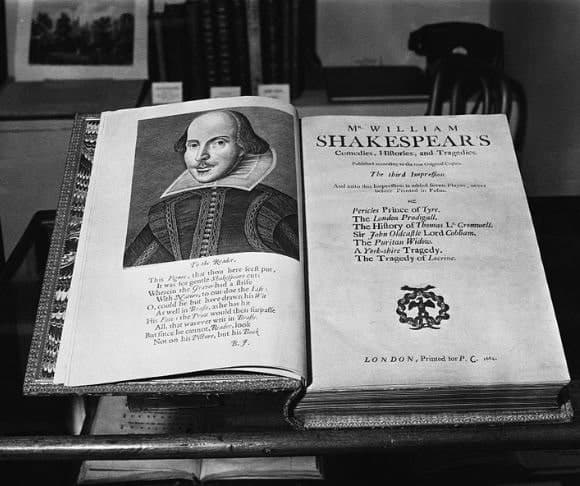 To the Reader.
This Figure, that thou here seest put,
It was for gentle Shakespeare cut;
Wherein the Graver had a strife
With Nature, to out-doe the Life:
O, could he but have drawn his Wit
As well in Brasse, as he has hit
His Face; the Print would then surpasse
All, that was ever writ in Brasse.
But since he cannot, Reader, look
Not on his Picture, but his Book.
B. J.
Mr. WILLIAM
SHAKESPEAR'S
Comedies, Histories, and Tragedies.
Published according to the true Original Copies.
The third Impression.
And unto this Impression is added seven Playes, never
before Printed in Folio.
viz.
Pericles Prince of Tyre.
The London Prodigall.
The History of Thomas Ld. Cromwell.
Sir John Oldcastle Lord Cobham.
The Puritan Widow.
A York-shire Tragedy.
The Tragedy of Locrine.
LONDON, Printed for P. C. 1664.